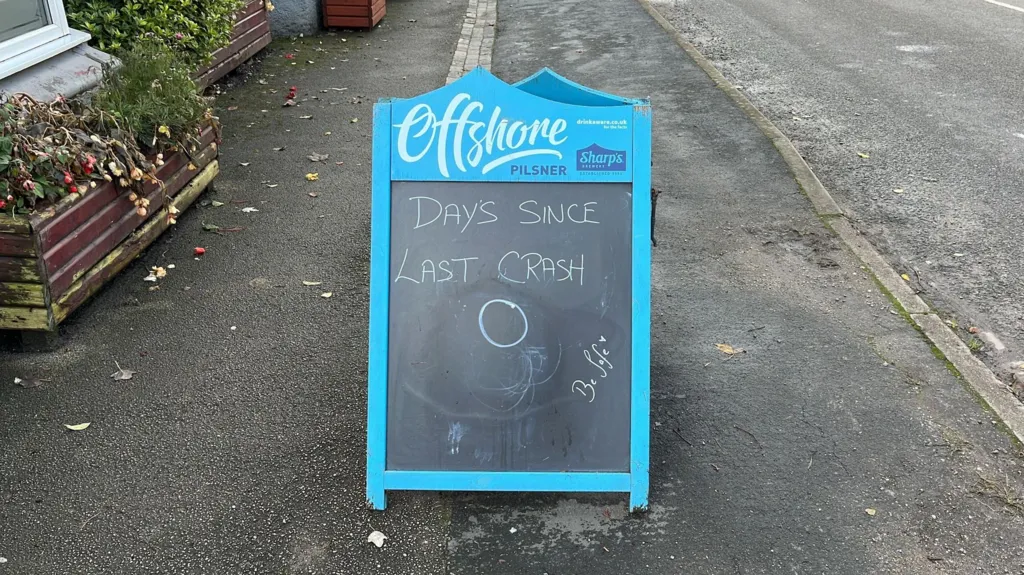 Offshore
PILSNER
drinkaware.co.uk
for the facts
Sharp's
BREWERY
DAY'S SINCE
LAST CRASH
0
Be Safe